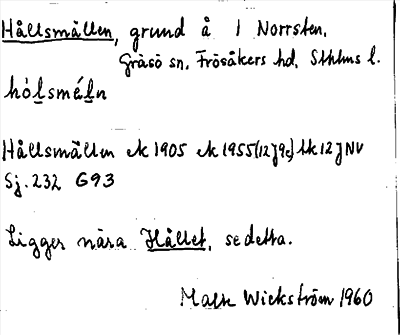 Hållsmällen, grund å 1 Norrsten,
Gräsö sn, Frösåkers hd, Sthlms l.
hólsméln
Hållsmällen ek 1905 ek 1955 (12J9c) tk 12 J NV
Sj. 232 G93
Ligger nära Hållet, se detta.
Wickström 1960